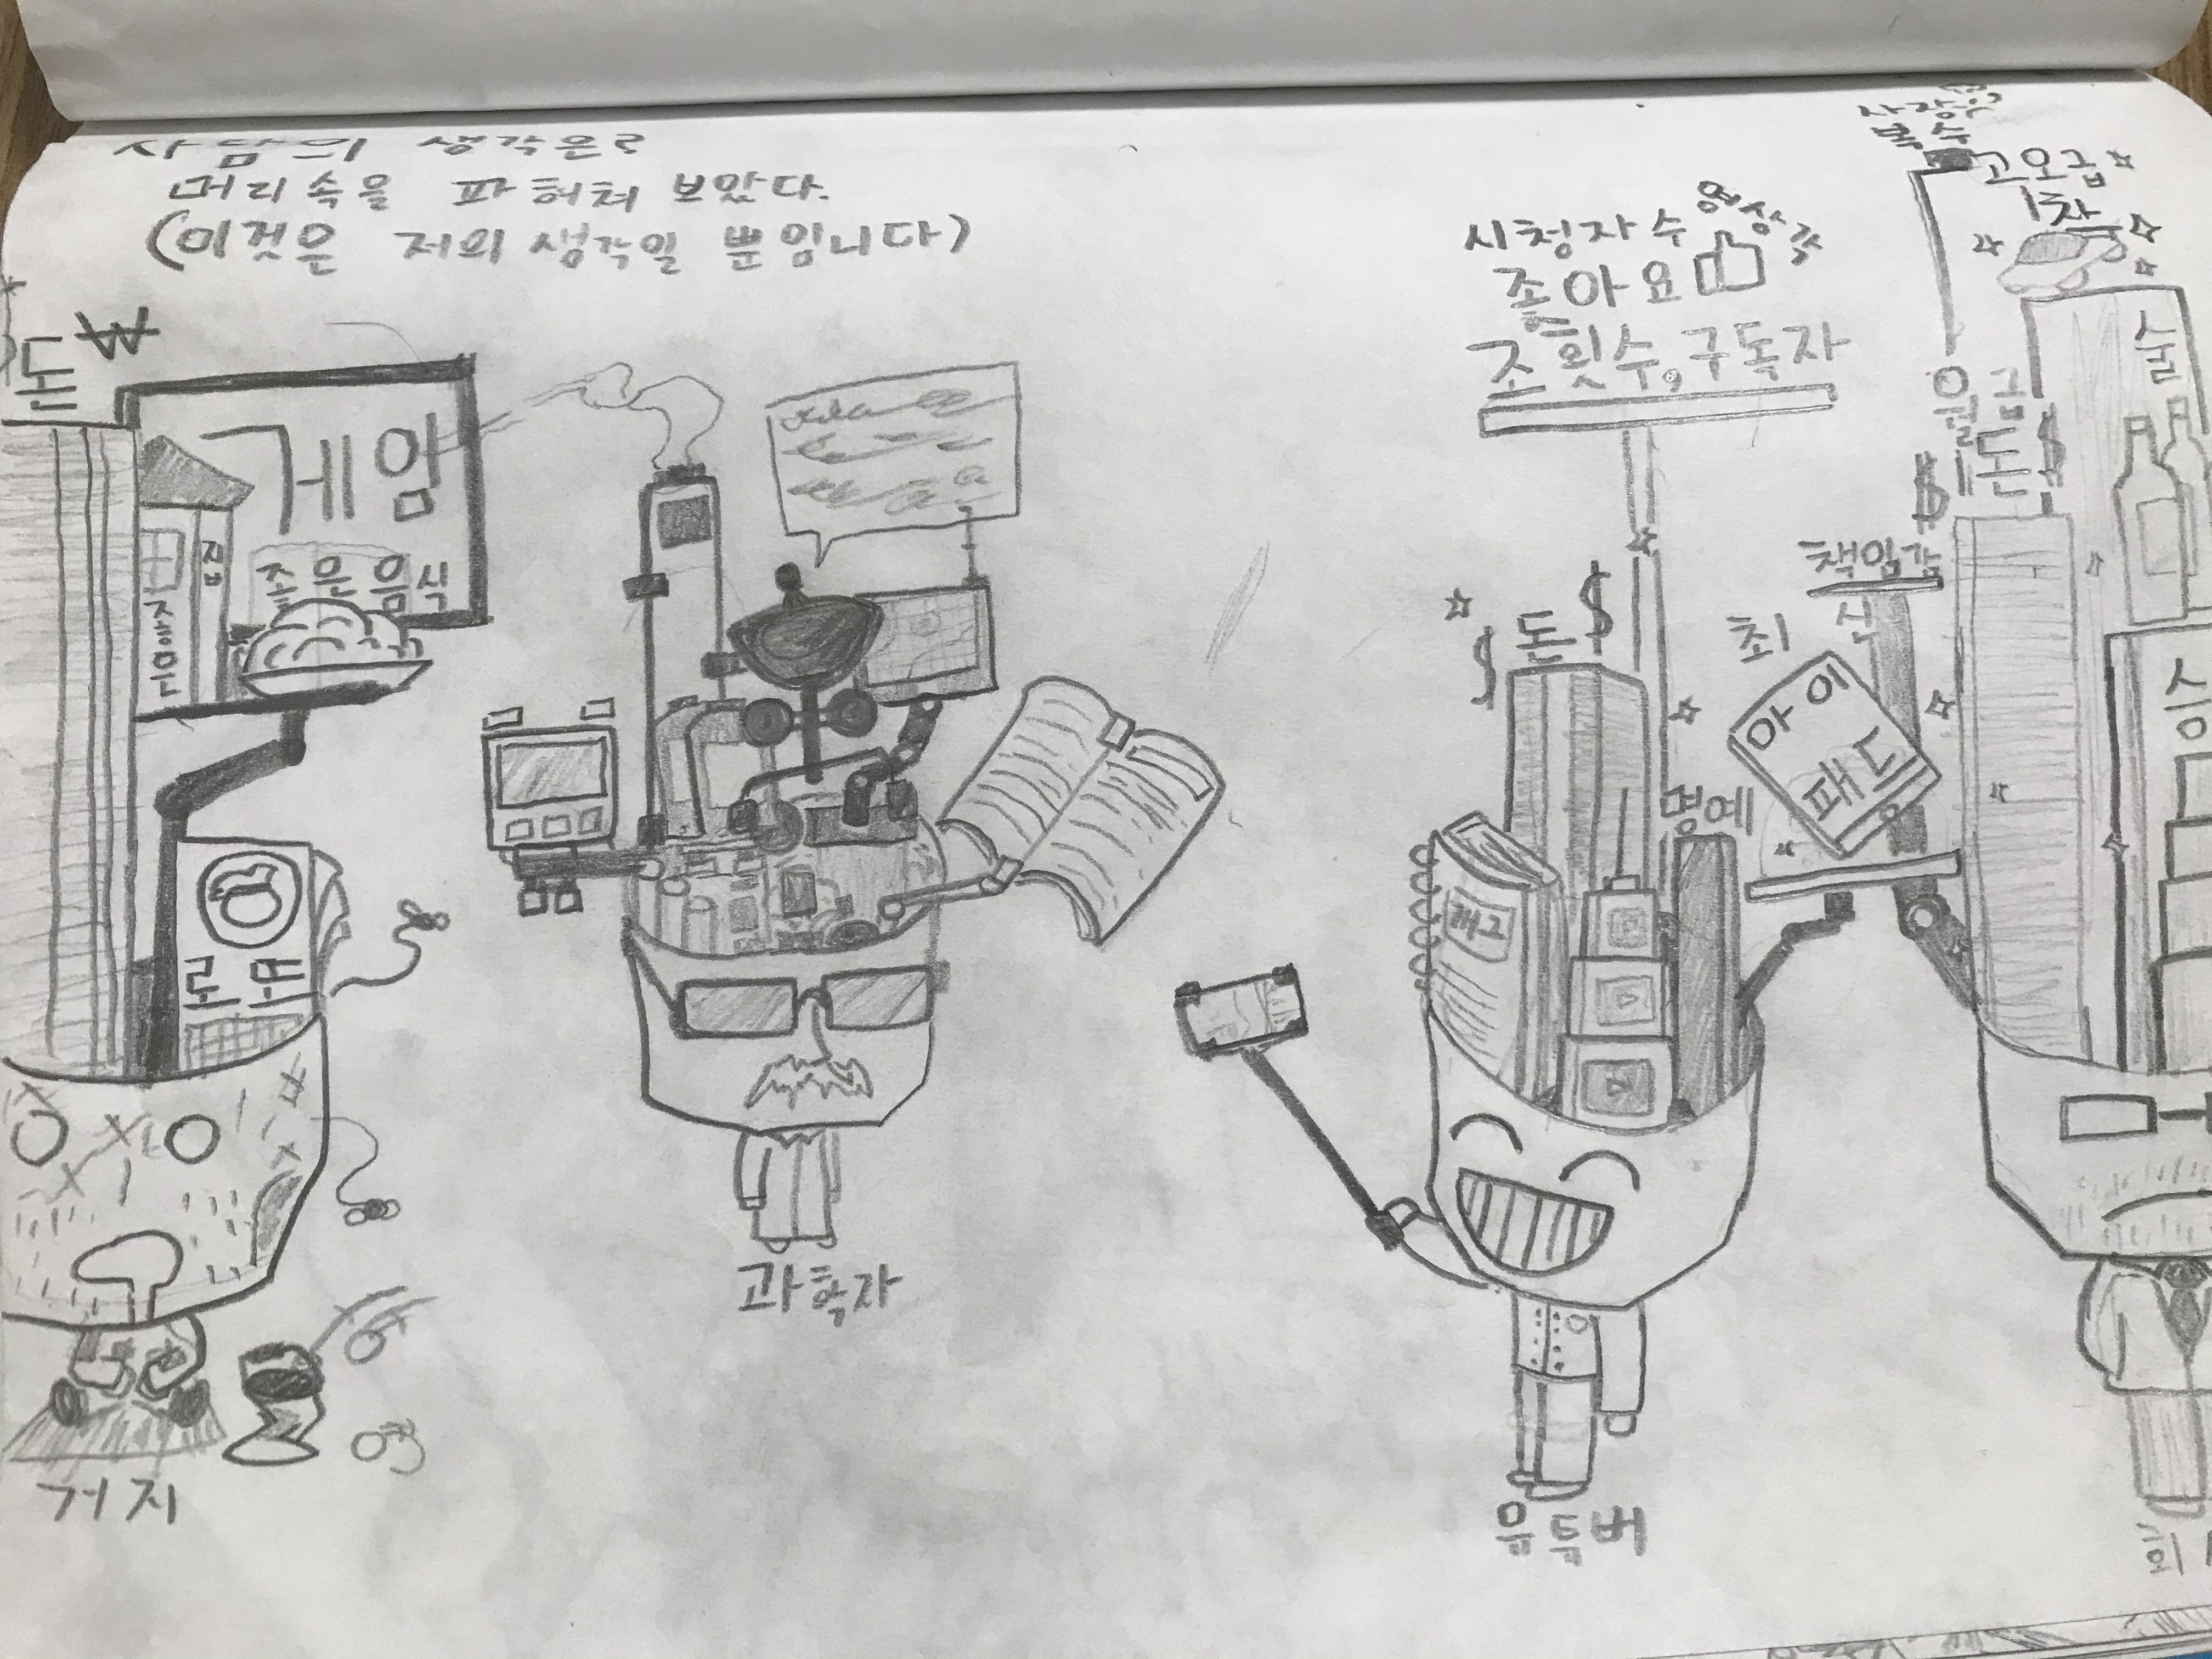 사람의 생각은?
머리속을 파혀쳐 보았다.
(이것은 저의 생각일 뿐입니다)
돈 ₩
게임
집
좋은 음식
로또
거지
과학자
시청자수 영상각
좋아요
조횟수, 구독자
돈 $
$
명예
최신
아이
패드
유투버
복수
고오급
차
월급
$ 돈 $
책임감
술